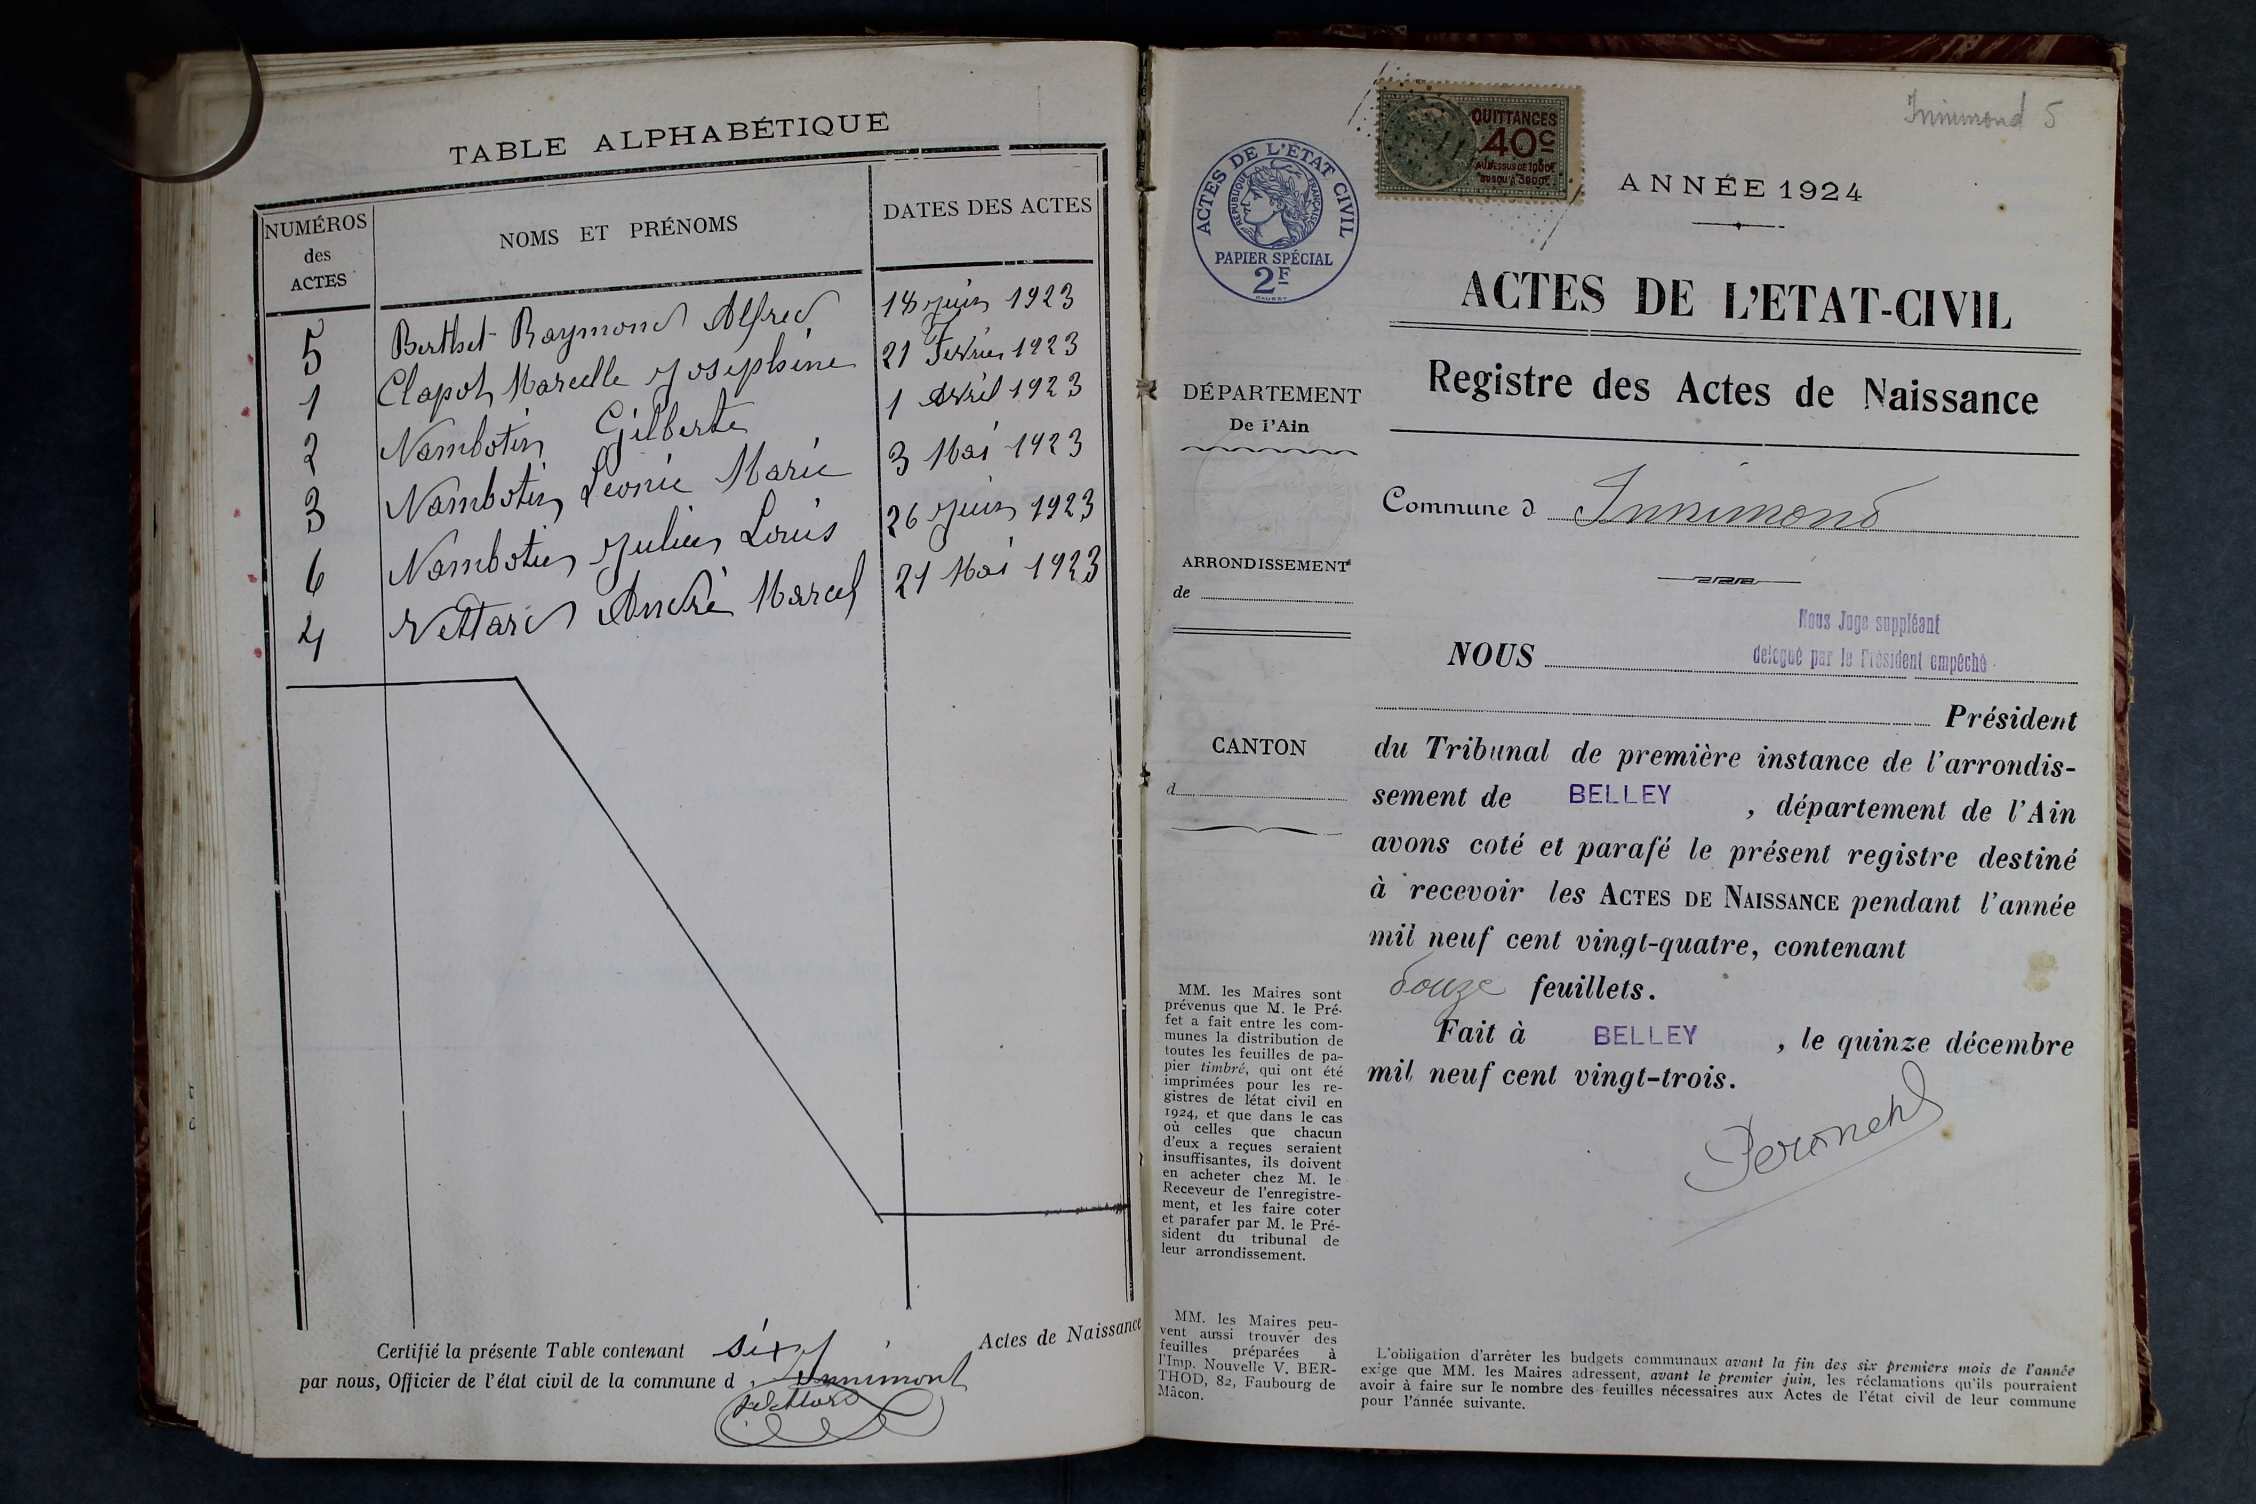 TABLE ALPHABÉTIQUE
NUMÉROS
des
ACTES
NOMS ET PRÉNOMS
DATES DES ACTES
5 Berthet Raymond Alfred 18 juin 1923
1 Clapot Marcelle Joséphine 21 Février 1923
2 Nambotin Gilberte 1 Avril 1923
3 Nambotin Léonie Marie 3 Mai 1923
6 Nambotin Julien Louis 26 juin 1923
4 Vettard André Marcel 21 Mai 1923
Certifié la présente Table contenant six Actes de Naissance
par nous, Officier de l'état civil de la commune d Innimont
Innimond 5
QUITTANCES
40c
AU DESSUS DE 1000F
JUSQU'A 3000F
ACTES DE L'ETAT CIVIL
REPUBLIQUE FRANÇAISE
PAPIER SPÉCIAL
2F
ANNÉE 1924
ACTES DE L'ETAT-CIVIL
Registre des Actes de Naissance
DÉPARTEMENT
De l'Ain
Commune d Innimond
ARRONDISSEMENT
de
Nous Juge suppléant
NOUS délégué par le Président empêché
Président
CANTON
d
du Tribunal de première instance de l'arrondis-
sement de BELLEY, département de l'Ain
avons coté et parafé le présent registre destiné
à recevoir les ACTES DE NAISSANCE pendant l'année
mil neuf cent vingt-quatre, contenant
douze feuillets.
Fait à BELLEY, le quinze décembre
mil neuf cent vingt-trois.
MM. les Maires sont
prévenus que M. le Pré-
fet a fait entre les com-
munes la distribution de
toutes les feuilles de pa-
pier timbré, qui ont été
imprimées pour les re-
gistres de l'état civil en
1924, et que dans le cas
où celles que chacun
d'eux a reçues seraient
insuffisantes, ils doivent
en acheter chez M. le
Receveur de l'enregistre-
ment, et les faire coter
et parafer par M. le Pré-
sident du tribunal de
leur arrondissement.
MM. les Maires peu-
vent aussi trouver des
feuilles préparées à
l'Imp. Nouvelle V. BER-
THOD, 82, Faubourg de
Mâcon.
L'obligation d'arrêter les budgets communaux avant la fin des six premiers mois de l'année
exige que MM. les Maires adressent, avant le premier juin, les réclamations qu'ils pourraient
avoir à faire sur le nombre des feuilles nécessaires aux Actes de l'état civil de leur commune
pour l'année suivante.